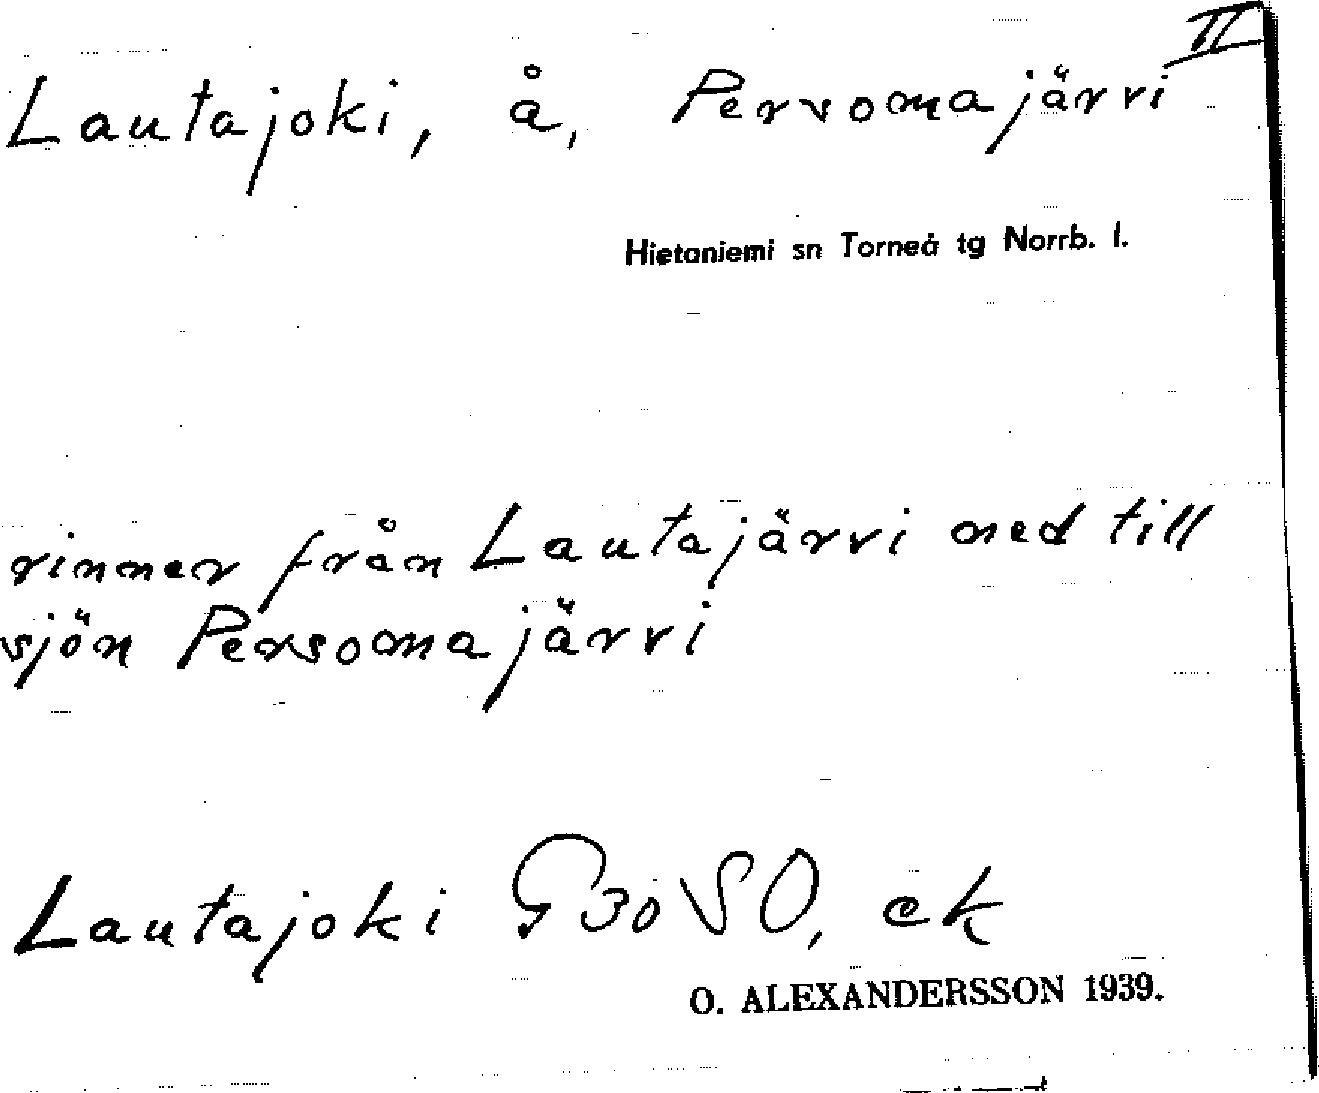 II
Lautajoki, å, Persomajärvi
Hietaniemi sn Torneå tg Norrb. l.
rinner från Lautajärvi ned till
sjön Persomajärvi
Lautajoki G30SO, ek
O. ALEXANDERSSON 1939.